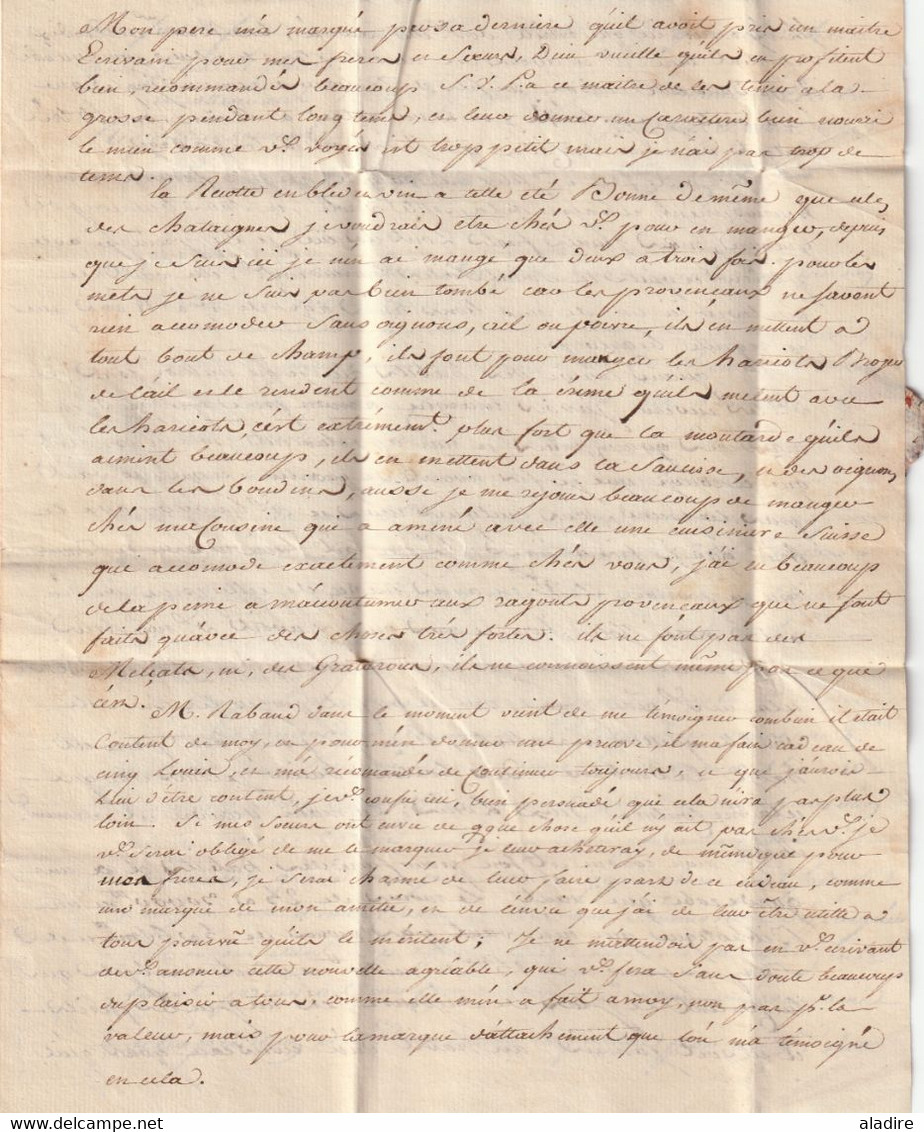 Mon pere m'a marqué par sa derniere qu'il avoit pris un maitre
Ecrivain pour mes freres et soeurs, Dieu vueille qu'ils en profitent
bien, recommandés beaucoup S. V. P. a ce maitre de les tenir a la
grosse pendant long tems, et leur donner un Caractere bien nourri
le mien comme vs. voyés est trop petit mais je n'ai pas trop de
tems.
la Recotte en bled et vin a telle été Bonne de même que celle
des chataignes je voudrais etre chés vs. pour en manger, depuis
que je suis ici je n'en ai mangé que deux a trois fois. pour les
mets je ne suis pas bien tombé car les provenceaux ne savent
rien acomoder sans oignons, ail ou poivre, ils en mettent a
tout bout de champ, ils font pour manger les haricots Broyer
de l'ail et le rendent comme de la crême qu'ils metent avec
les haricots, c'est extrément. plus fort que la moutarde qu'ils
aiment beaucoup, ils en mettent dans la saucisse, et des oignons
dans les boudins, aussi je me rejouis beaucoup de manger
chés ma Cousine qui a amené avec elle une cuisiniere Suisse
qui accomode exactement comme chés vous, j'ai eu beaucoup
de la peine a m'acoutumer aux ragouts provenceaux qui ne sont
faits qu'avec des choses trés fortes. ils ne font pas des
Melsats, ni, des Gratarons, ils ne connoissent même pas ce que
c'est.
M. Rabaud dans le moment vient de me témoigner combien il était
Content de moy, et pour m'en donner une preuve, il ma fait cadeau de
cinq Louis, et m'a récomandé de Continuer toujours, et que j'aurois
lui d'être content, je vs. confie ici, bien persuadé que cela n'ira pas plus
loin. Si mes soeurs ont envie de qque chose qu'il n'y ait pas chés vs. je
vs. serai obligé de me le marquer je leur acheteray, de même que pour
mes freres, je serai charmé de leur faire part de ce cadeau, comme
une marque de mon amitié, et de l'envie que j'ai de leur être utile a
tous pourvû qu'ils le méritent; Je ne m'attendois pas en vs. ecrivant
de vs. anoncer cette nouvelle agréable, qui vs. fera sans doute beaucoup
du plaisir a tous, comme elle m'en a fait a moy, non pas pr. la
valeur, mais pour la marque d'attachement que l'on m'a témoigné
en cela.
aladire